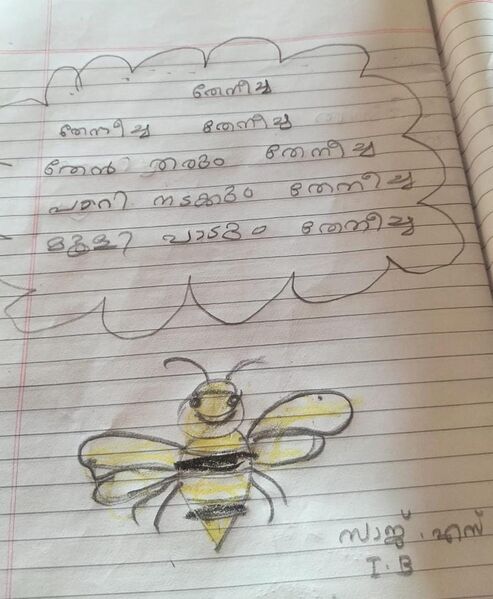 തേനീച്ച
തേനീച്ച തേനീച്ച
തേൻ തരും തേനീച്ച
പാറി നടക്കും തേനീച്ച
മൂളി പാടും തേനീച്ച
സാജ് . എസ്
I. B